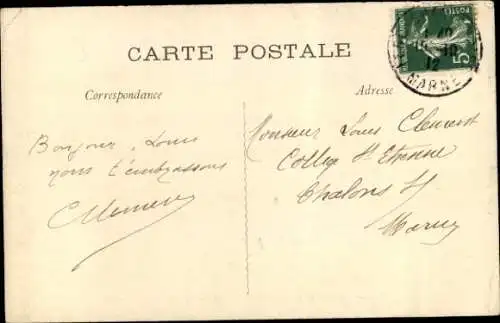 CARTE POSTALE
Correspondance
Adresse
Bonjour, Louis
nous t'embrassons
Clement
Monsieur Louis Clement
College St Etienne
Chalons s/
Marne
5
12
MARNE